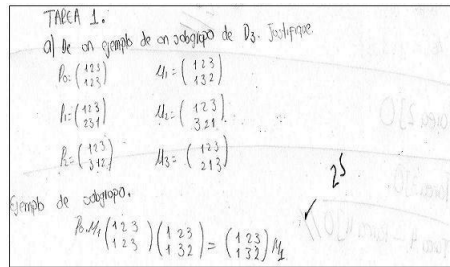 TAREA 1.
a) De un ejemplo de un subgrupo de D3. Justifique.
P0=(1 2 3 / 1 2 3) μ1=(1 2 3 / 1 3 2)
P1=(1 2 3 / 2 3 1) μ2=(1 2 3 / 3 2 1)
P2=(1 2 3 / 3 1 2) μ3=(1 2 3 / 2 1 3)
25
Ejemplo de subgrupo.
P0.μ1 (1 2 3 / 1 2 3) (1 2 3 / 1 3 2) = (1 2 3 / 1 3 2) μ1